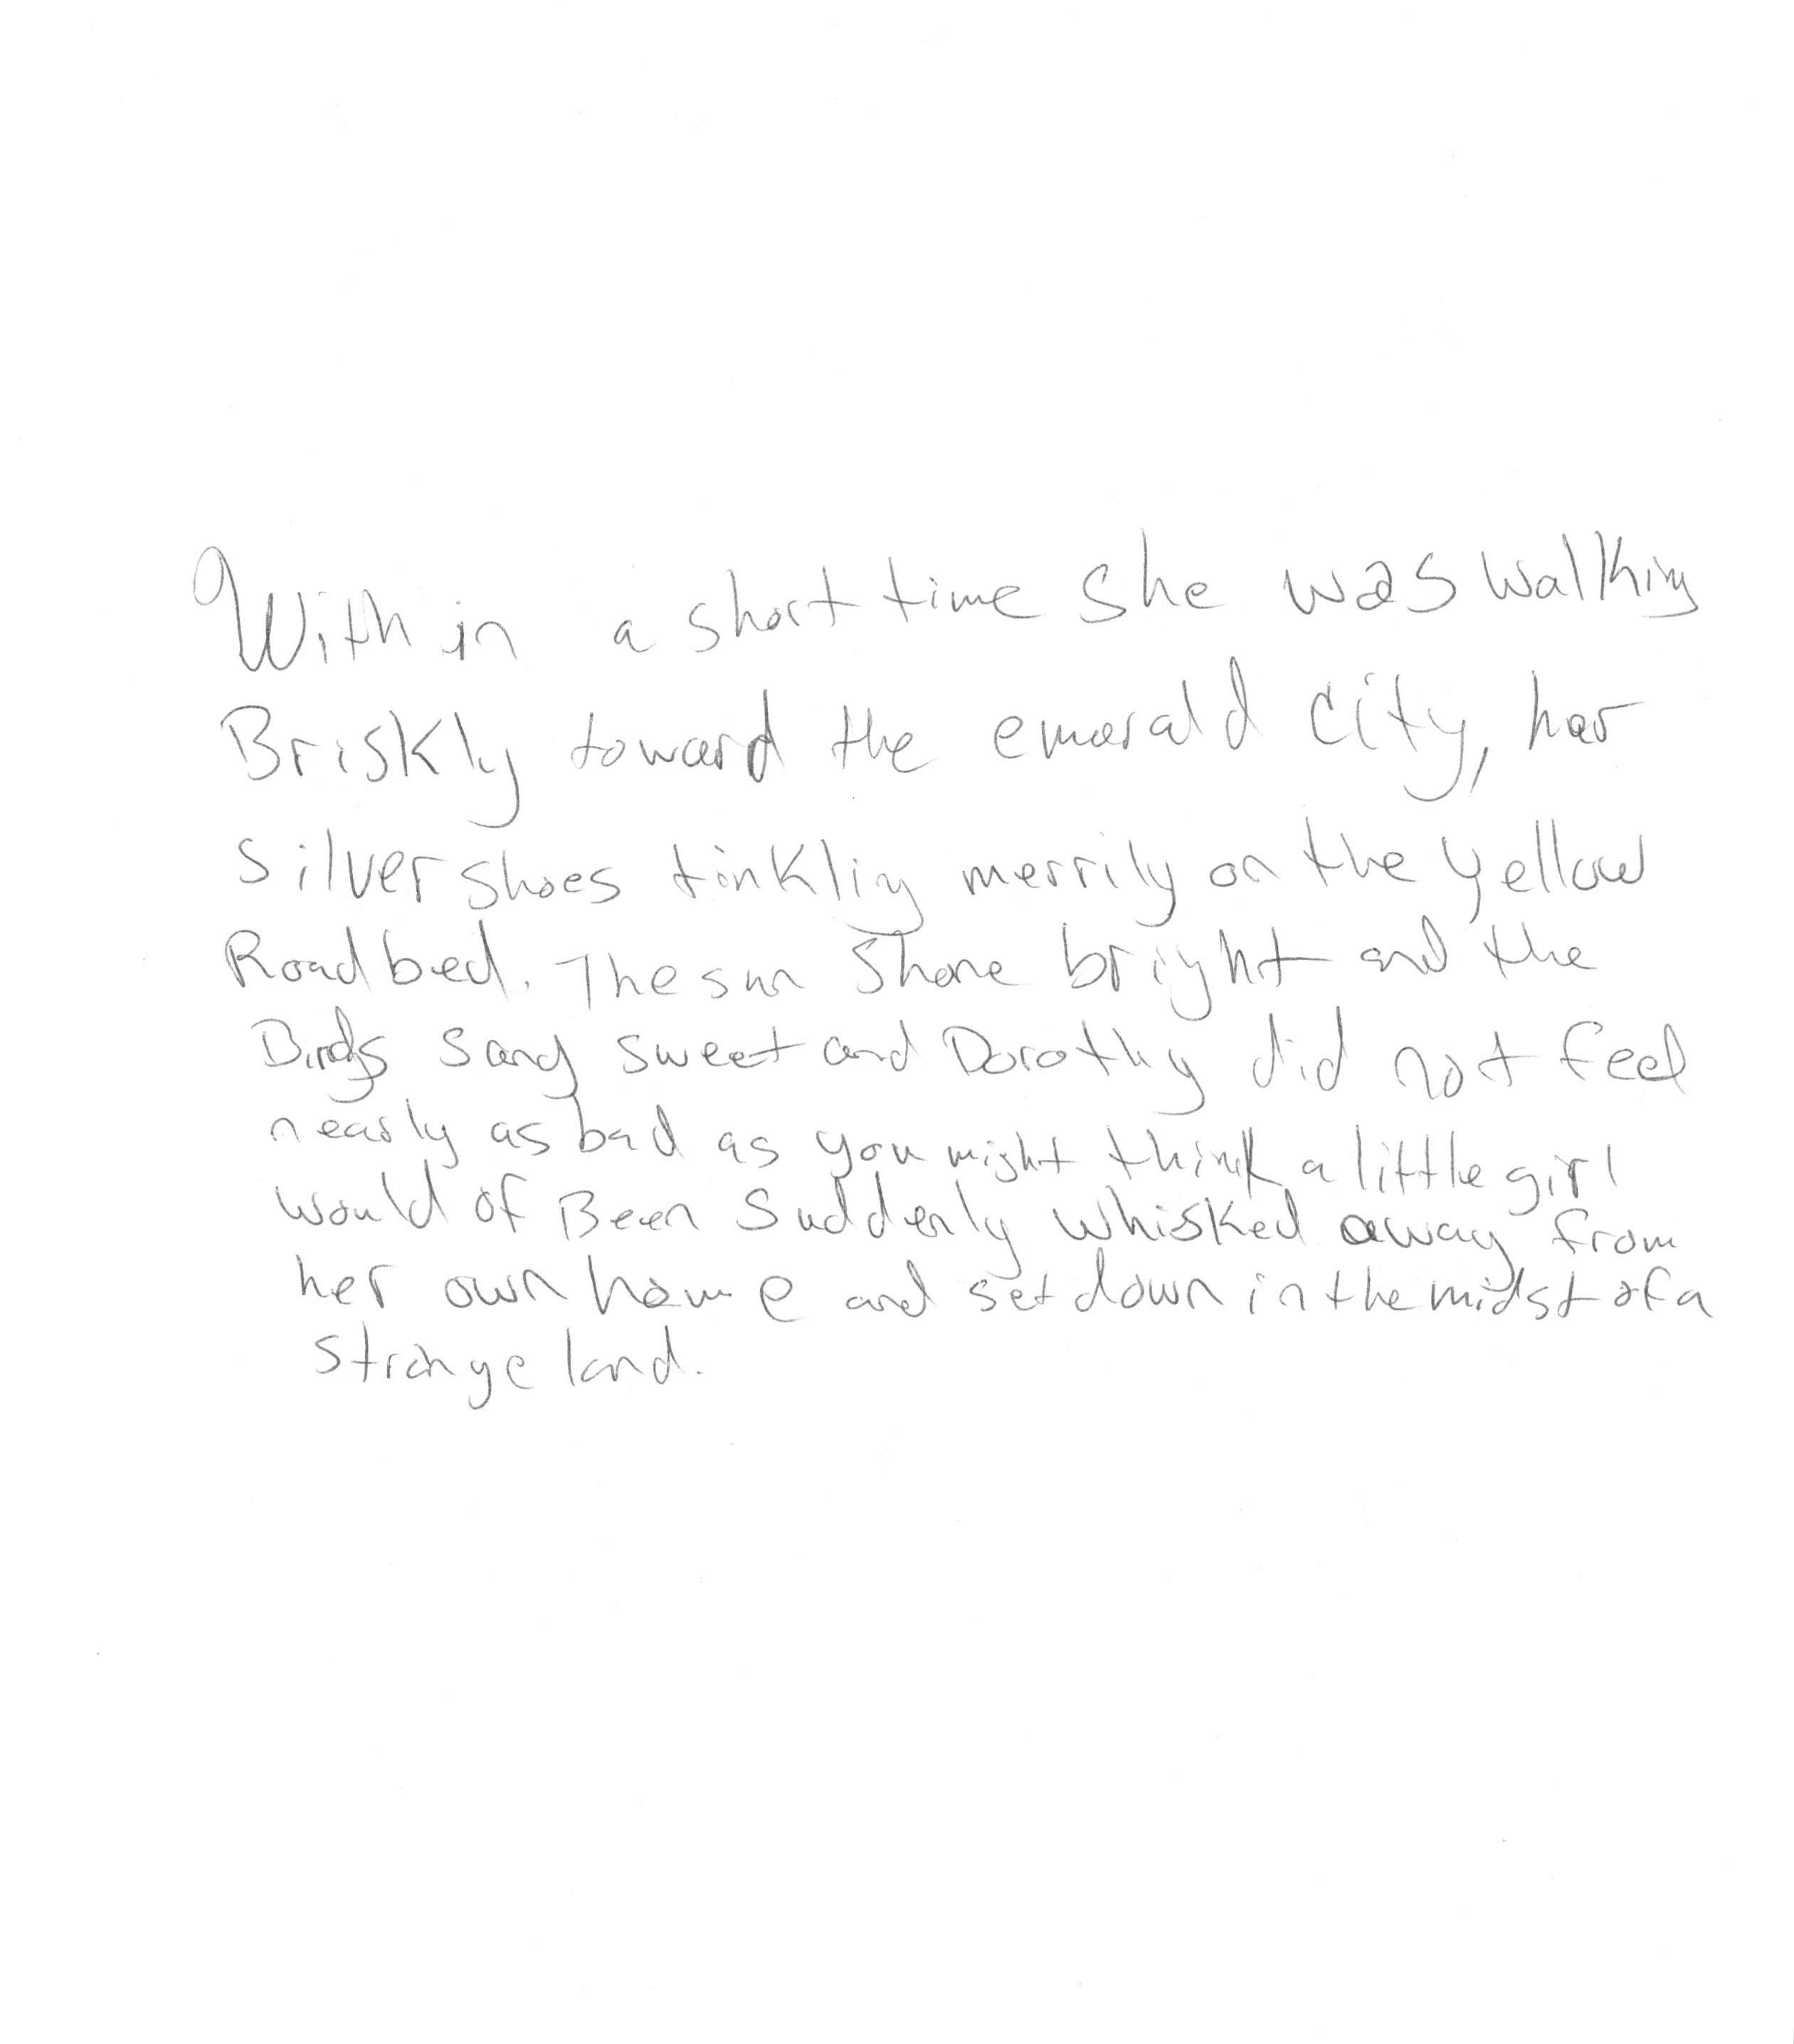 Within a short time she was walking
Briskly toward the emerald City, her
silver shoes tinkling merrily on the yellow
Road bed. The sun shone bright and the
Birds sang sweet and Dorothy did not feel
nearly as bad as you might think a little girl
would of Been suddenly whisked away from
her own home and set down in the midst of a
strange land.